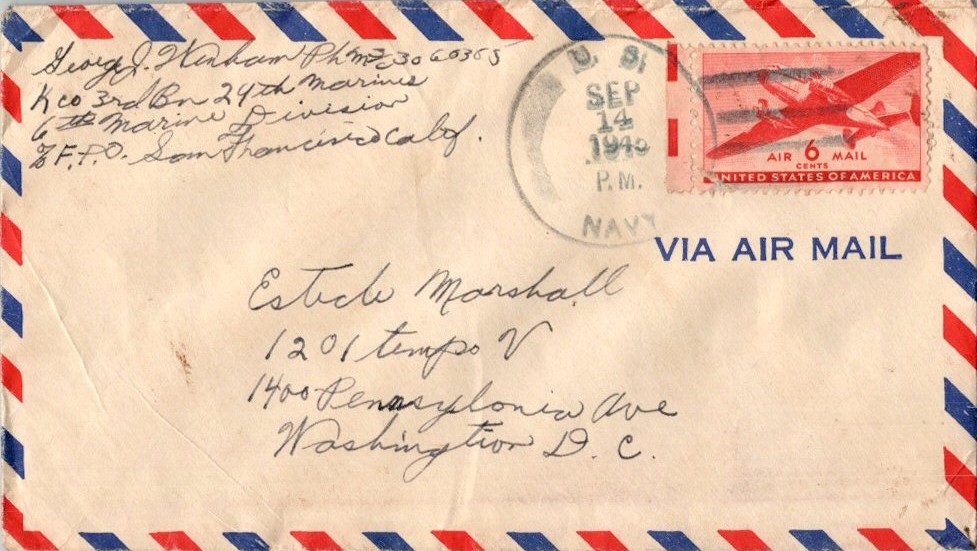 George J. Windham PhM3/c 30 60385
K co 3rd Bn 29th Marines
6th Marine Division
% F.P.O. San Francisico Calif.
U. S.
SEP
14
P.M.
NAVY
AIR 6 MAIL
CENTS
UNITED STATES OF AMERICA
VIA AIR MAIL
Marshall
1201 tempo V
1400 Pennsylonia Ave
Washington D. C.